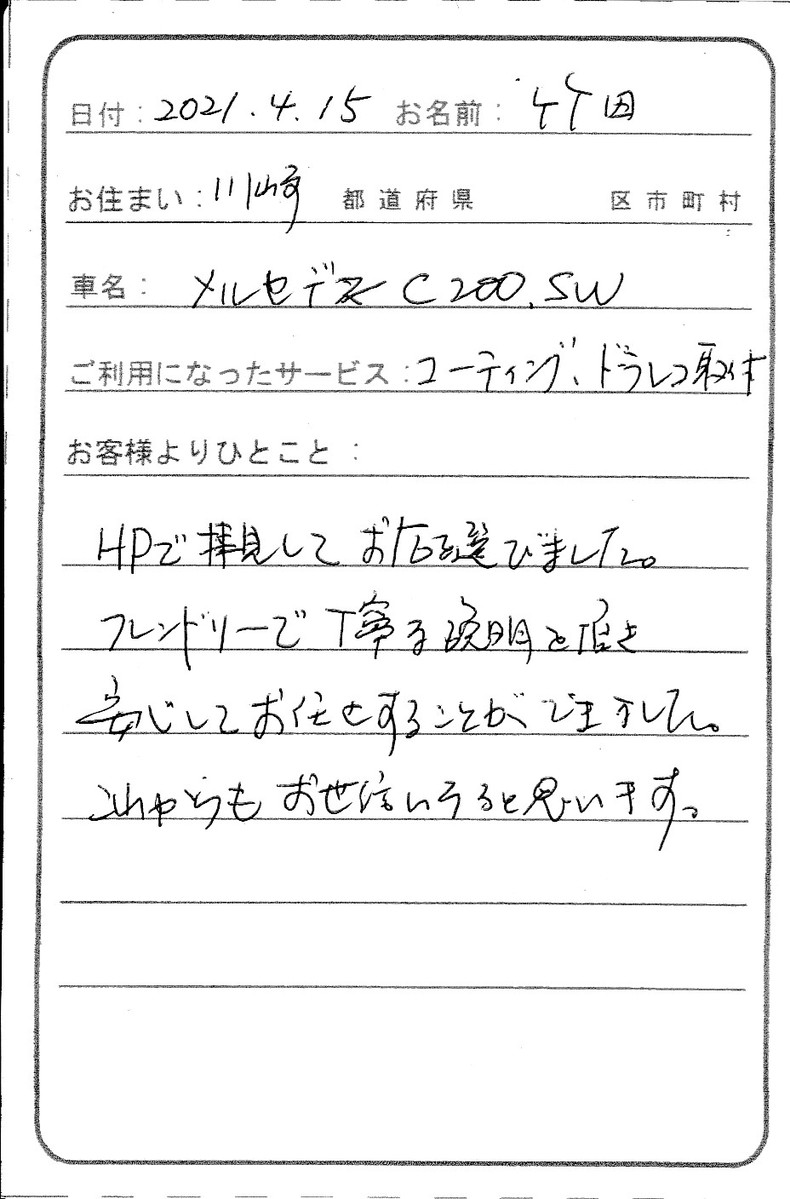 日付：2021.4.15 お名前：竹田
お住まい：川崎 都道府県 区市町村
車名：メルセデス C200.SW
ご利用になったサービス：コーティング、ドラレコ取付
お客様よりひとこと：
HPで拝見してお店を選びました。
フレンドリーで丁寧な説明を頂き
安心してお任せすることができました。
これからもお世話になると思います。